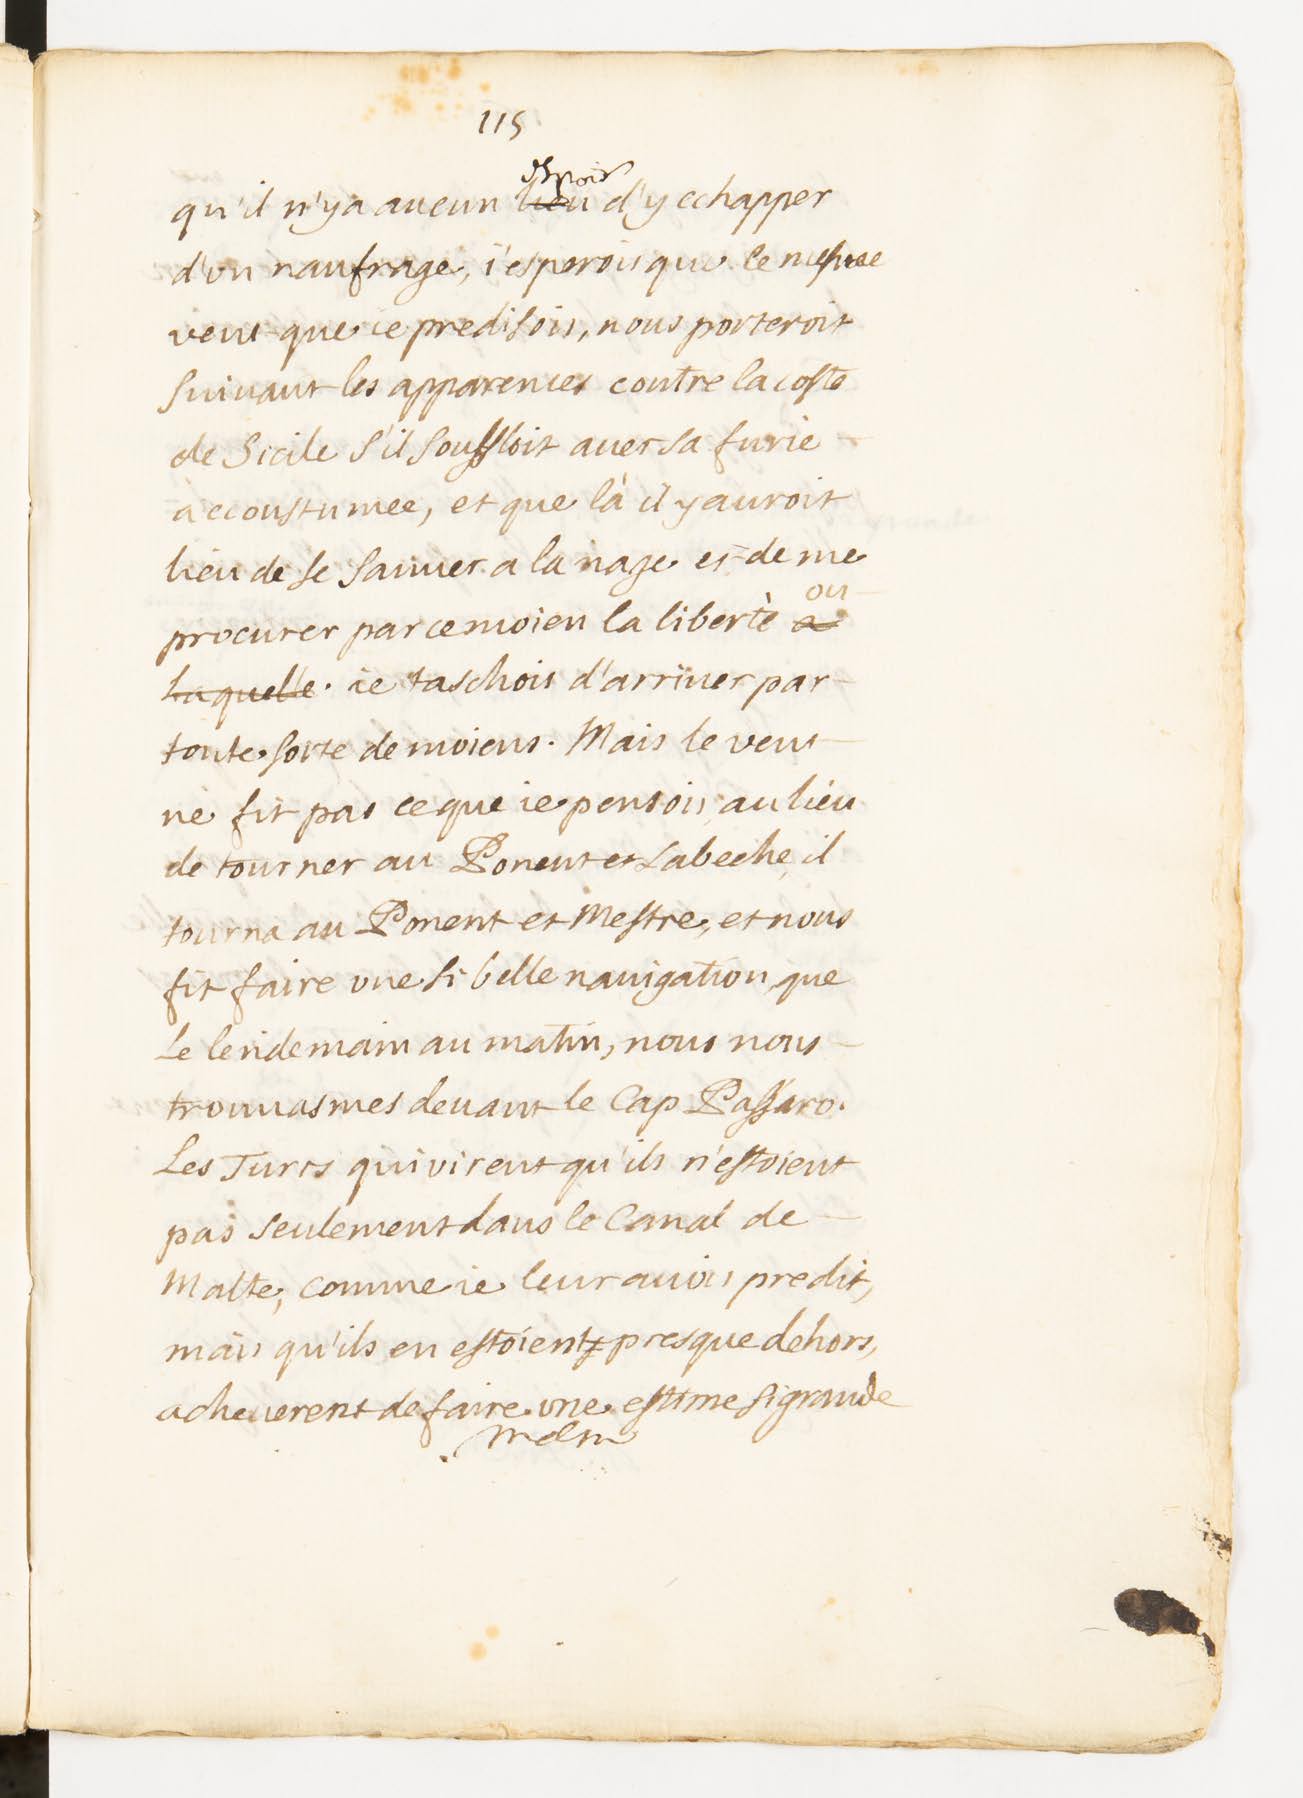 115
espoir
qu'il n'y a aucun lieu d'y echapper
d'vn naufrage, i'esperois que le mesme
vent que ie predisois, nous porteroit
suiuant les apparences contre la coste
de Sicile s'il souffloit auec sa furie
accoustumee, et que là il y auroit
lieu de se sauuer a la nage et de me
ou
procurer par ce moien la libertè a
laquelle. ie taschois d'arriuer par
toute sorte de moiens. Mais le vent
ne fit pas ce que ie pensois, au lieu
de tourner au Ponent et Labeche, il
tourna au Ponent et Mestre, et nous
fit faire vne si belle nauigation, que
Le lendemain au matin, nous nous
trouuasmes deuant le Cap Passaro.
Les Turcs qui virent qu'ils n'estoient
pas seulement dans le Canal de
Malte, comme ie leur auois predit,
mais qu'ils en estoient presque dehors,
acheuerent de faire vne estime si grande